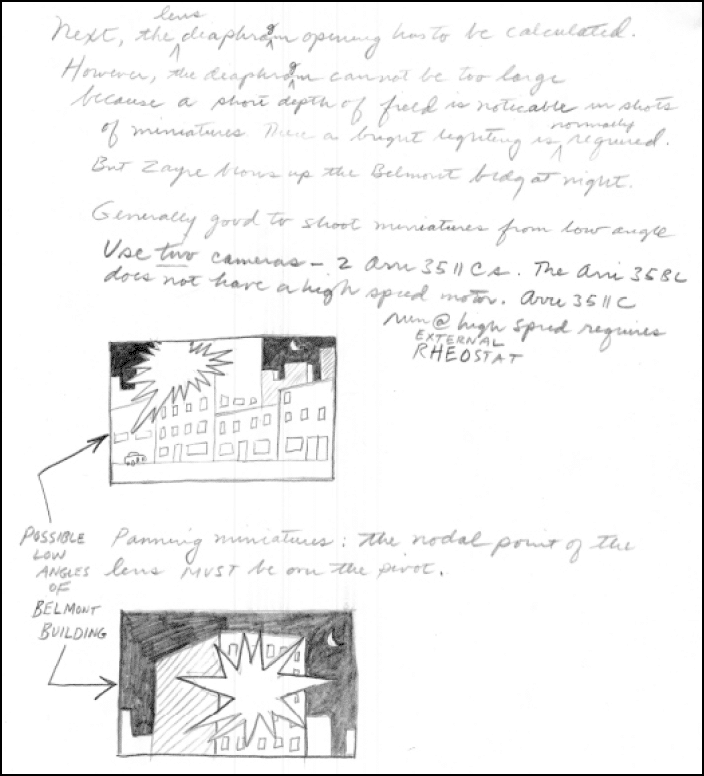 Next, the lens deaphragm opening has to be calculated.
However, the deaphragm cannot be too large
because a short depth of field is noticable in shots
of miniatures Thus a bright lighting is normally required.
But Zayre blows up the Belmont bldg at night.
Generally good to shoot miniatures from low angle
Use two cameras – 2 Arri 35 II Cs. The Arri 35BL
does not have a high speed motor. Arri 35 II C
run @ high speed requires
EXTERNAL
RHEOSTAT
POSSIBLE
LOW
ANGLES
OF
BELMONT
BUILDING
Panning miniatures: the nodal point of the
lens MUST be on the pivot.